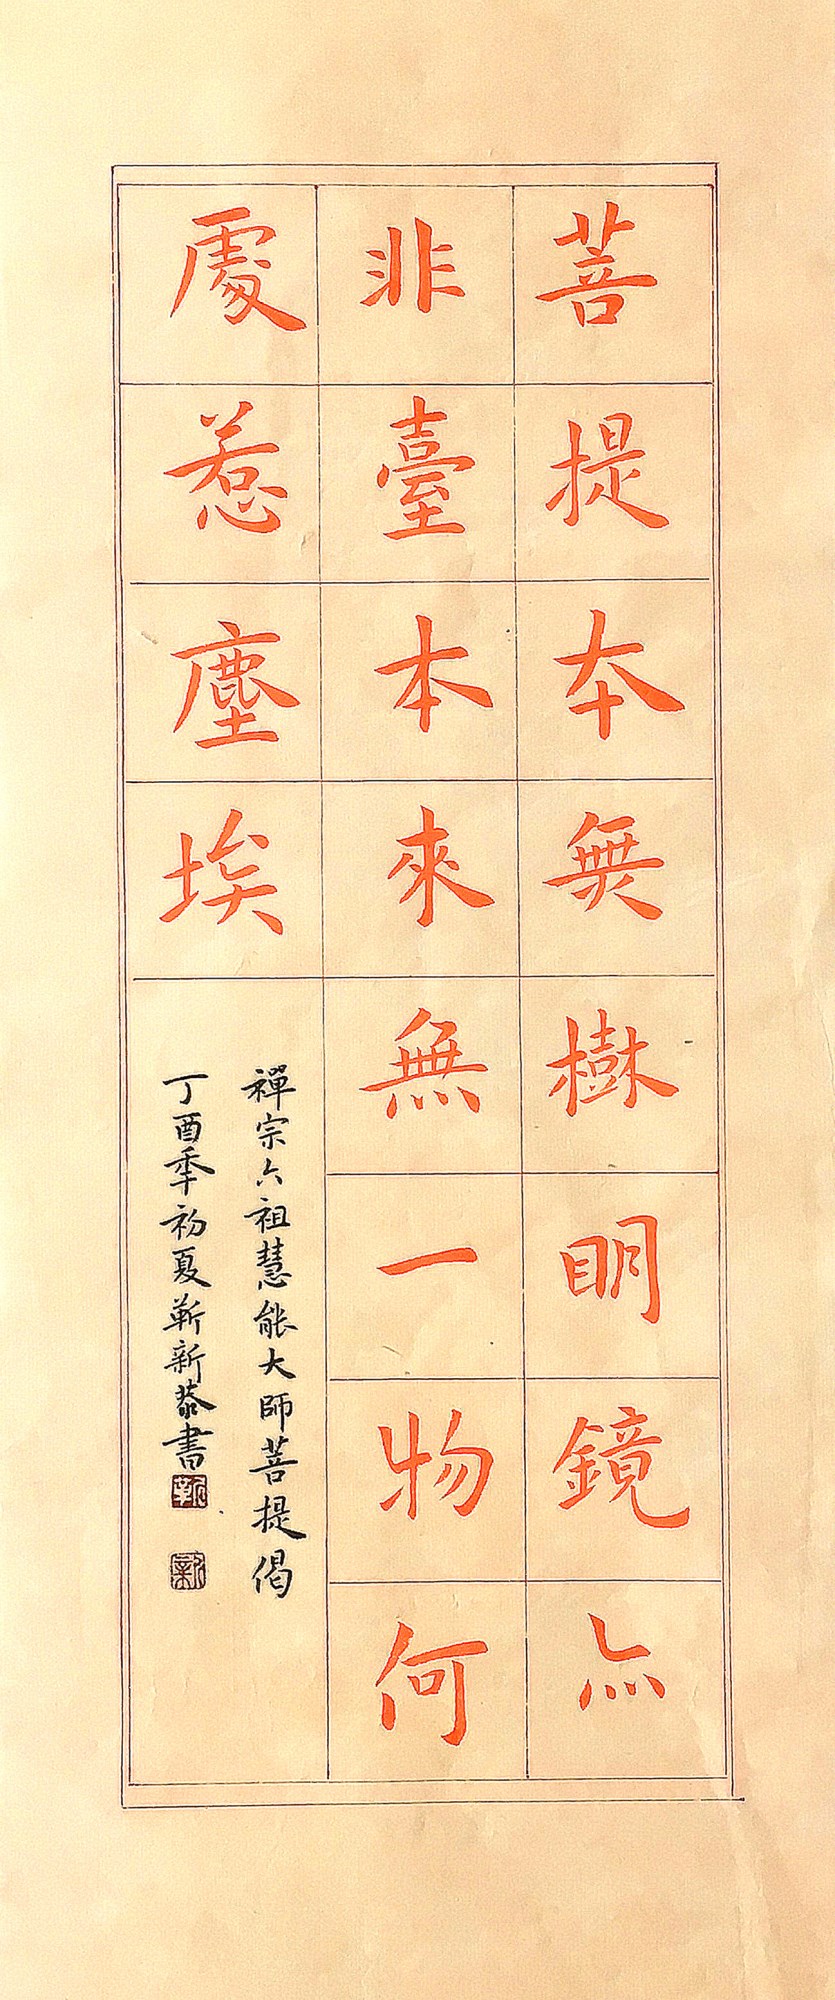 菩提本無樹明鏡亦
非臺本來無一物何
處惹塵埃
禪宗六祖慧能大師菩提偈
丁酉年初夏靳新恭書
靳
新